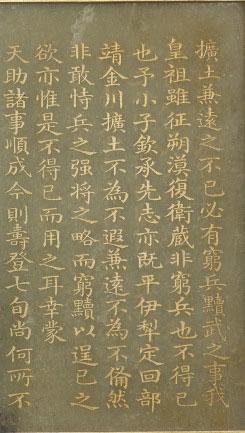 擴土兼遠之不已必有窮兵黷武之事我
皇祖雖征朔漠復衛藏非窮兵也不得已
也予小子欽承先志亦既平伊犁定回部
靖金川擴土不為不遐兼遠不為不僃然
非敢恃兵之强將之略而窮黷以逞己之
欲亦惟是不得已而用之耳幸蒙
天助諸事順成今則壽登七旬尚何所不